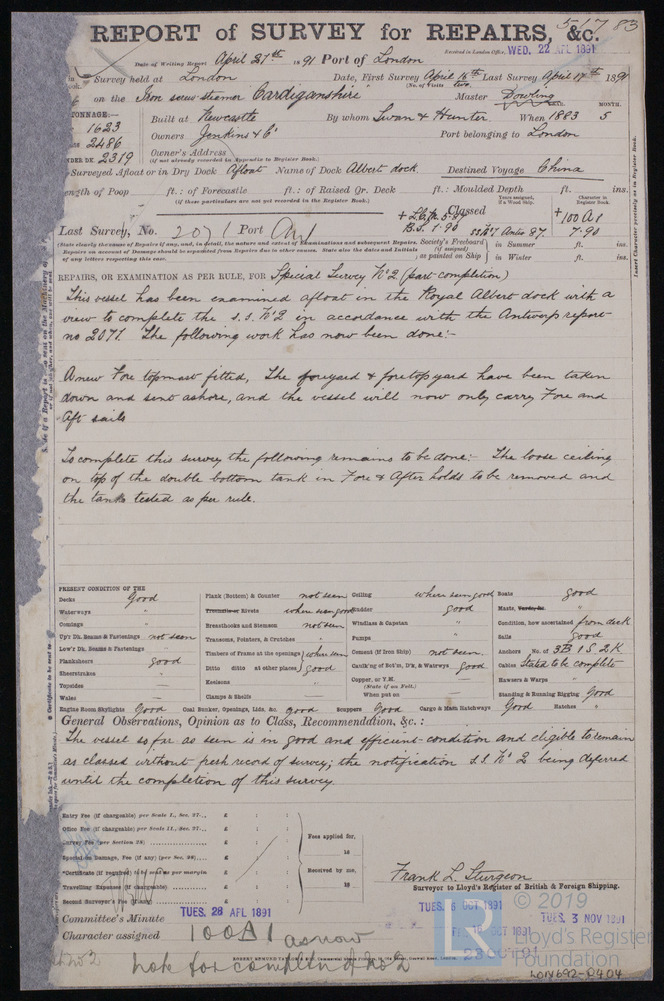 51783
REPORT of SURVEY for REPAIRS, &c.
Received in London Office, WED. 22 APL 1891
Date of Writing Report April 21st 1891 Port of London
Survey held at London Date, First Survey April 16th Last Survey April 17th 1891
(No. of Visits two)
on the Iron screw steamer Cardiganshire Master Dowling
TONNAGE:— Built at Newcastle By whom Swan & Hunter When 1883 MONTH. 5
1623
2486 Owners Jenkins & Co Port belonging to London
UNDER DK 2319 Owner's Address
(if not already recorded in Appendix to Register Book.)
Surveyed Afloat or in Dry Dock Afloat Name of Dock Albert dock Destined Voyage China
ength of Poop ft.: of Forecastle ft.: of Raised Qr. Deck ft.: Moulded Depth ft. ins.
(If these particulars are not yet recorded in the Register Book.)
Classed
Years assigned, if a Wood Ship.
Character in Register Book.
+100 A1
7.90
B.S. 1.90
Last Survey, No. 2071 Port Ant
(State clearly the cause of Repairs if any, and, in detail, the nature and extent of Examinations and subsequent Repairs.
Repairs on account of Damage should be separated from Repairs due to other causes. State also the dates and Initials
of any letters respecting this case.
Society's Freeboard (if assigned) as painted on Ship in Summer ft. ins.
in Winter ft. ins.
REPAIRS, OR EXAMINATION AS PER RULE, FOR Special Survey No 2 (part completion)
This vessel has been examined afloat in the Royal Albert dock with a
view to complete the s.s. No 2 in accordance with the Antwerp report
no 2071. The following work has now been done:-
A new Fore topmast fitted, The foreyard & foretopyard have been taken
down and sent ashore, and the vessel will now only carry Fore and
Aft sails
To complete this survey the following remains to be done:- The loose ceiling
on top of the double bottom tank in Fore & After holds to be removed and
the tanks tested as per rule.
PRESENT CONDITION OF THE
Decks good Plank (Bottom) & Counter not seen Ceiling where seen good Boats good
Waterways " Treenails or Rivets where seen good Rudder good Masts, Yards, &c. "
Comings " Breasthooks and Stemson not seen Windlass & Capstan " Condition, how ascertained from deck
Up'r Dk. Beams & Fastenings not seen Transoms, Pointers, & Crutches " Pumps " Sails good
Low'r Dk. Beams & Fastenings " Timbers of Frame at the openings where seen Cement (if Iron Ship) not seen Anchors No. of 3B 1S. 2K
Planksheers good Ditto ditto at other places good Caulk'ng of Bot'm, D'k, & Waterways good Cables Stated to be complete
Sheerstrakes " Keelsons Copper, or Y.M. — Hawsers & Warps "
Topsides (State if on Felt.)
Wales — Clamps & Shelfs — When put on — Standing & Running Rigging good
Engine Room Skylights good Coal Bunker, Openings, Lids, &c. good Scuppers good Cargo & Main Hatchways Good Hatches "
General Observations, Opinion as to Class, Recommendation, &c.:
The vessel so far as seen is in good and efficient condition and eligible to remain
as classed without fresh record of survey; the notification s.s. No 2 being deferred
until the completion of this survey.
Entry Fee (if chargeable) per Scale I., Sec. 27... £ : :
Office Fee (if chargeable) per Scale II., Sec. 27... £ : :
Survey Fee (per Section 28) £ : :
Special on Damage, Fee (if any) (per Sec. 28) £ : :
*Certificate (if required) to be sent as per margin
Travelling Expenses (if chargeable) £ : :
Second Surveyor's Fee (if any) £ : :
Fees applied for,
18
Received by me,
18
Frank L. Sturgeon
Surveyor to Lloyd's Register of British & Foreign Shipping.
Committee's Minute TUES. 28 APL 1891 TUES. 6 OCT 1891 TUES. 3 NOV 1891
Character assigned 100A1 as now
note for completion of no 2
© 2019
Lloyd's Register
Foundation
LON692-0404